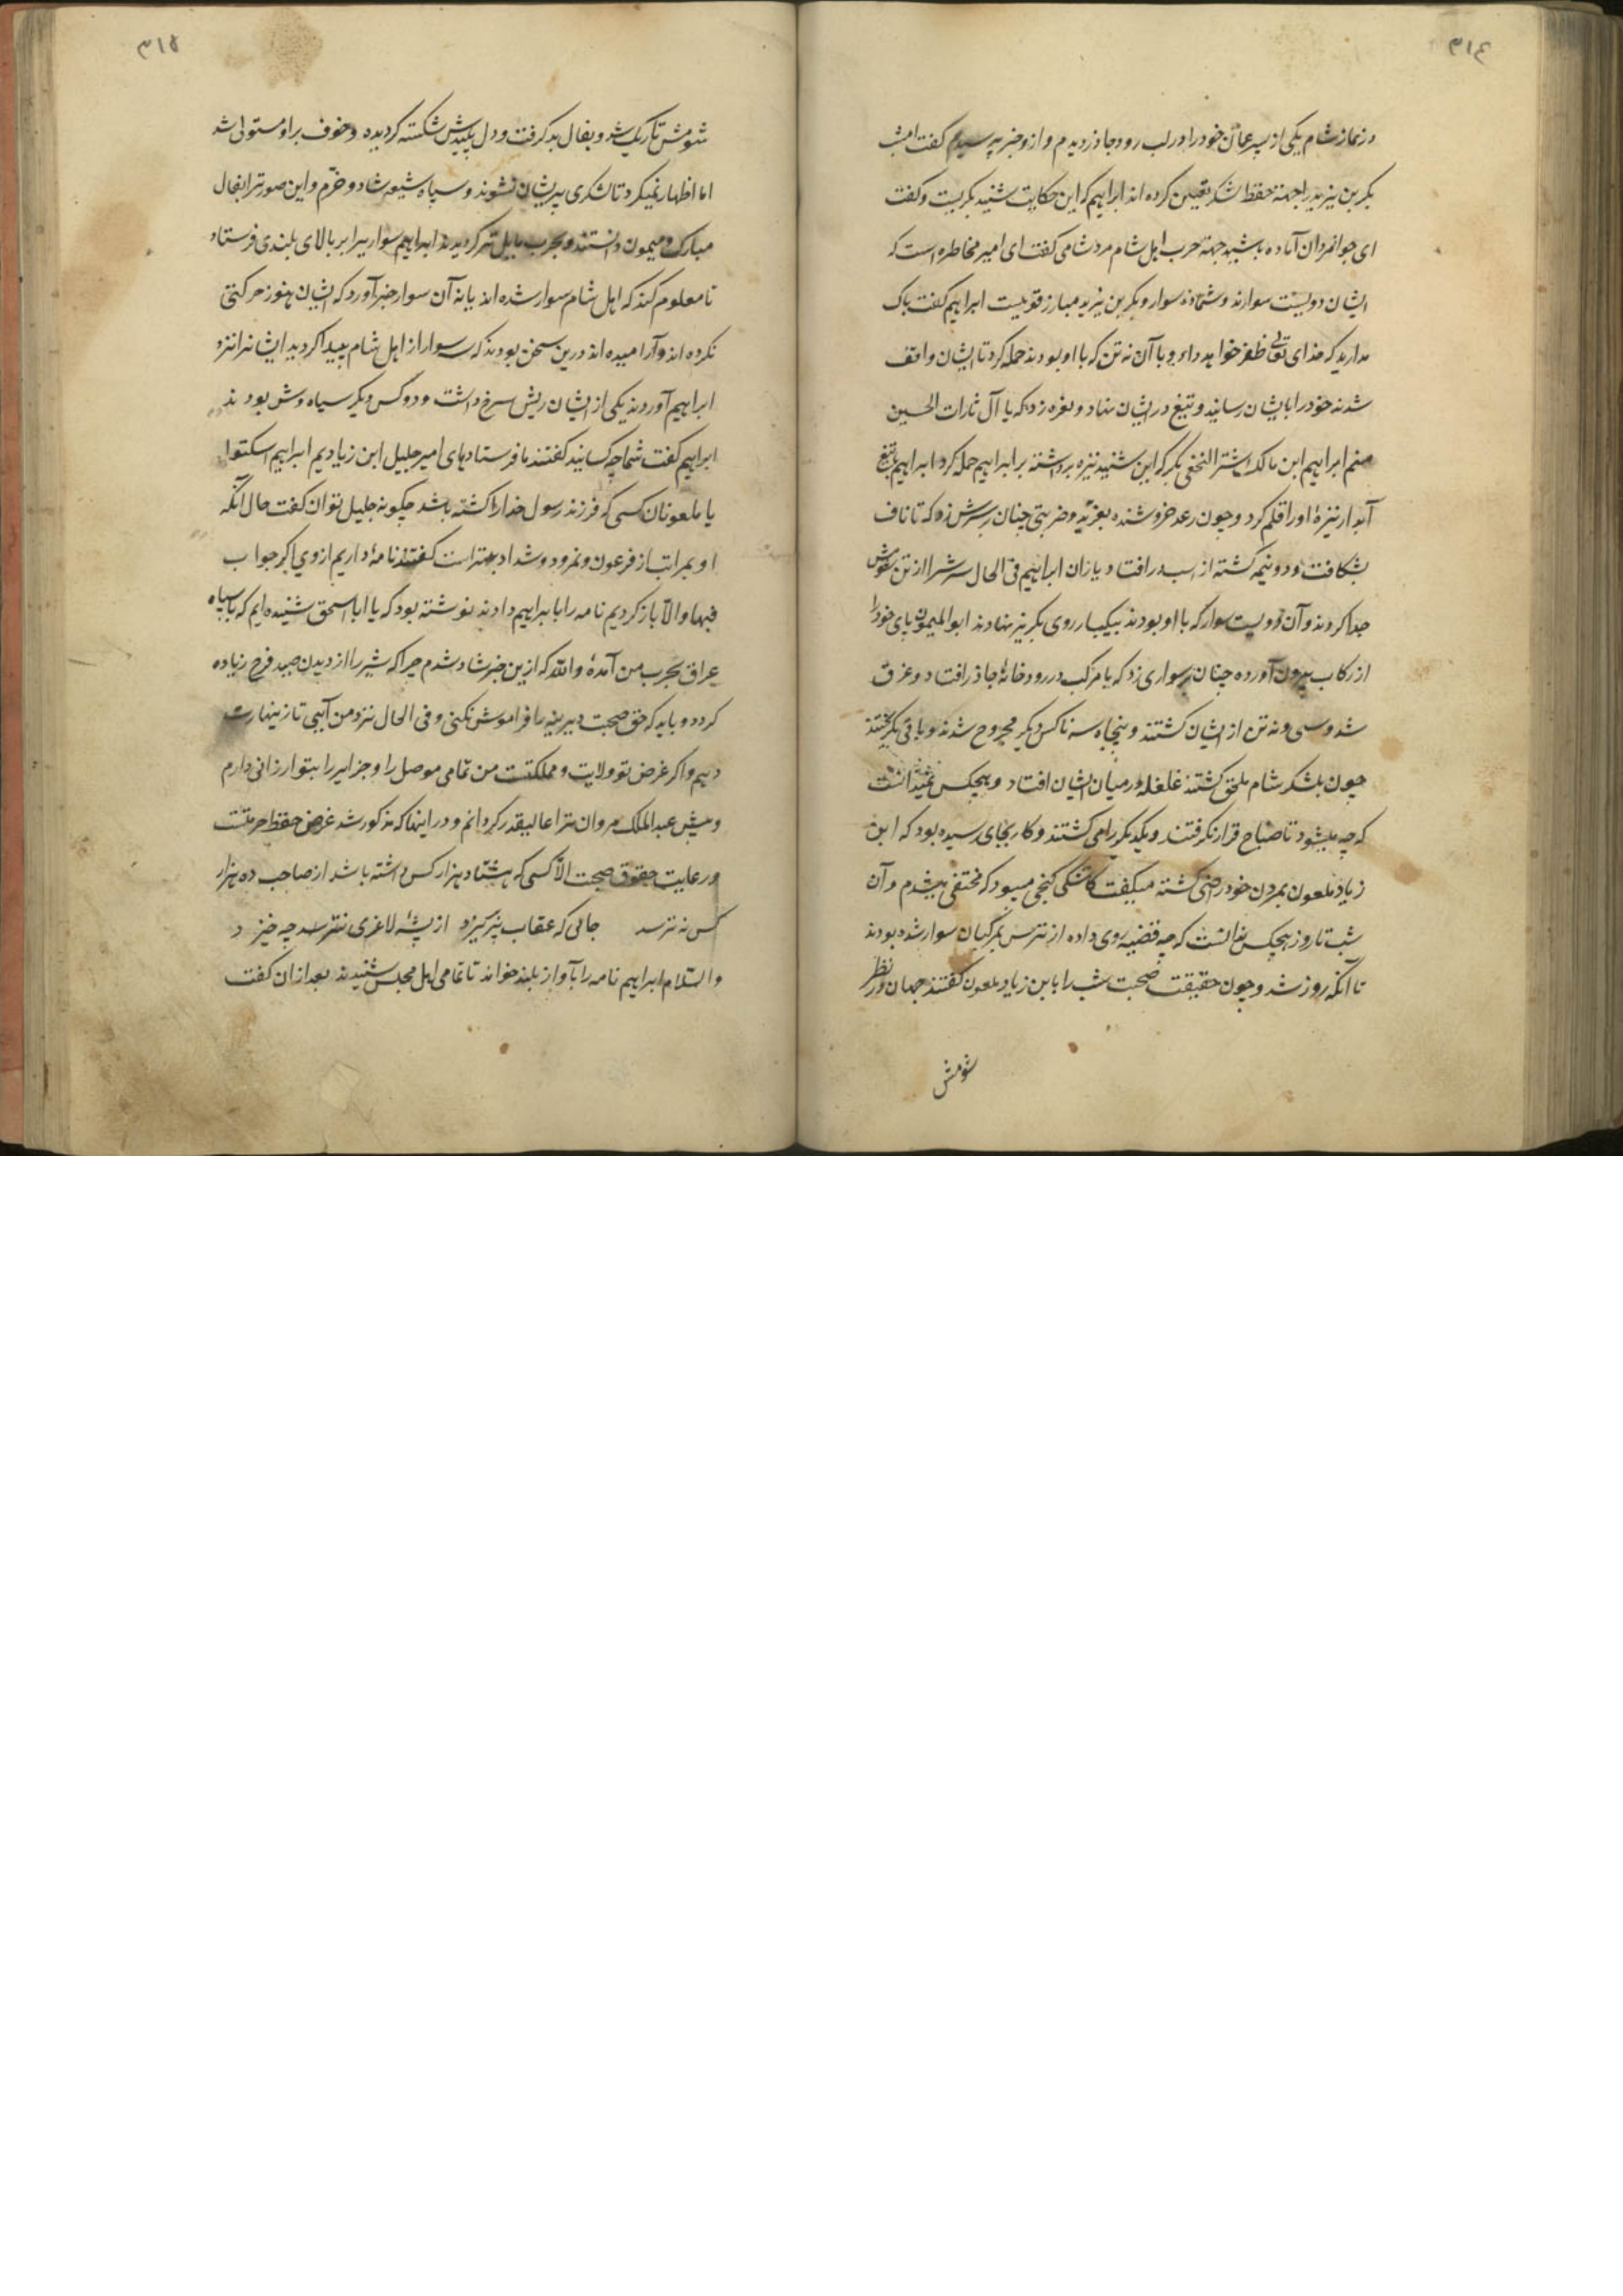 ٣١٤
در نماز شام یکی از پسر عمان خود را در لب رود جاذر دیدم و از و خبر پرسیدم گفت امشب
بکر بن یزید را جهة حفظ لشکر تعیین کرده اند ابراهیم که این حکایت شنید بکریست و کفت
ای جوانمردان آماده باشید جهة حرب اهل شام مرد شامی کفت ای امیر مخاطره است که
ایشان دویست سوارند و شما ده سوار و بکر بن یزید مبارز قویست ابراهیم کفت باک
مدارید که خدای تعالی ظفر خواهد داد و با آن نه تن که با او بودند حمله کرد تا ایشان واقف
شدند خود را بایشان رسانید و تیغ در ایشان نهاد و نعره زد که یا آل ثارات الحسین
منم ابراهیم ابن مالک اشتر النخعی بکر که این شنید نیزه برداشته بر ابراهیم حمله کرد ابراهیم تیغ
آبدار نیزهٔ او را قلم کرد و چون رعد خروشنده بغرید و ضربتی چنان بر سرش زد که تا ناف
بشکافت و دو نیمه کشته از اسب در افتاد و یاران ابراهیم فی الحال سرش را از تن شومش
جدا کردند و آن دویست سوار که با او بودند بیکبار روی بکریز نهادند ابو المیمون پای خود را
از رکاب بیرون آورده چنان بر سواری زد که با مرکب در رودخانهٔ جاذر افتاد و غرق
شد و سی و نه تن از ایشان کشتند و پنجاه سه ناکس دیکر مجروح شدند و باقی بکریختند
چون بلشکر شام ملحق کشتند غلغله در میان ایشان افتاد و هیچکس نمیدانست
که چه میشود تا صباح قرار نکرفتند و یکدیکر را می کشتند و کار بجای رسیده بود که ابن
زیاد ملعون بمردن خود راضی کشته میکفت کاشکی کنجی میبود که مختفی میشدم و آن
شب تا روز هیچکس ندانست که چه قضیه روی داده از ترس بمرکبان سوار شده بودند
تا آنکه روز شد و چون حقیقت صحبت شب را بابن زیاد ملعون کفتند جهان در نظر
شومش
٣١٥
شومش تاریک شد و بفال بد کرفت و دل پلیدش شکسته کردیده و خوف بر او مستولی شد
اما اظهار نمیکرد تا لشکری پریشان نشوند و سپاه شیعه شاد و خرّم و این صورت را بفال
مبارک و میمون دانستند و بحرب مایل تر کردیدند ابراهیم سواریرا بر بالای بلندی فرستاد
تا معلوم کند که اهل شام سوار شده اند یا نه آن سوار خبر آورد که ایشان هنوز حرکتی
نکرده اند و آرامیده اند درین سخن بودند که سه سوار از اهل شام پیدا کردید ایشانرا نزد
ابراهیم آوردند یکی از ایشان ریش سرخ داشت و دو کس دیکر سیاه وش بودند
ابراهیم کفت شما چه کسانید کفتند ما فرستادهای امیر جلیل ابن زیادیم ابراهیم اسکتوا
یا ملعونان کسی که فرزند رسول خدا را کشته باشد چکونه جلیل توان کفت حال آنکه
او بمراتب از فرعون و نمرود و شداد بدتر است کفتند نامهٔ داریم از وی اکر جواب
فبها و الا باز کردیم نامه را بابراهیم دادند نوشته بود که یا ابا اسحق شنیده ایم که با سپاه
عراق بحرب من آمدهٔ والله که ازین خبر شاد شدم چرا که شیر را از دیدن صید فرح زیاده
کردد و باید که حق صحبت دیرینه را فراموش نکنی و فی الحال نزد من آیی تا زینهارت
دهیم و اکر غرض تو ولایت و مملکتست من تمامی موصل را و جزایر را بتو ارزانی دارم
و پیش عبد الملک مروان ترا عالیقدر کردانم و در اینها که مذکور شد غرض حفظ حرمتست
و رعایت حقوق صحبت الا کسی که هشتاد هزار کس داشته باشد از صاحب ده هزار
کس نه ترسد جائی که عقاب پر بریزد از پشهٔ لاغری نترسد چه خیزد
و السّلام ابراهیم نامه را بآواز بلند خواند تا تمامی اهل مجلس شنیدند بعد از ان کفت